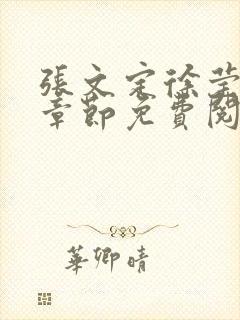 張文定徐瑩
章節免費閱
華卿晴